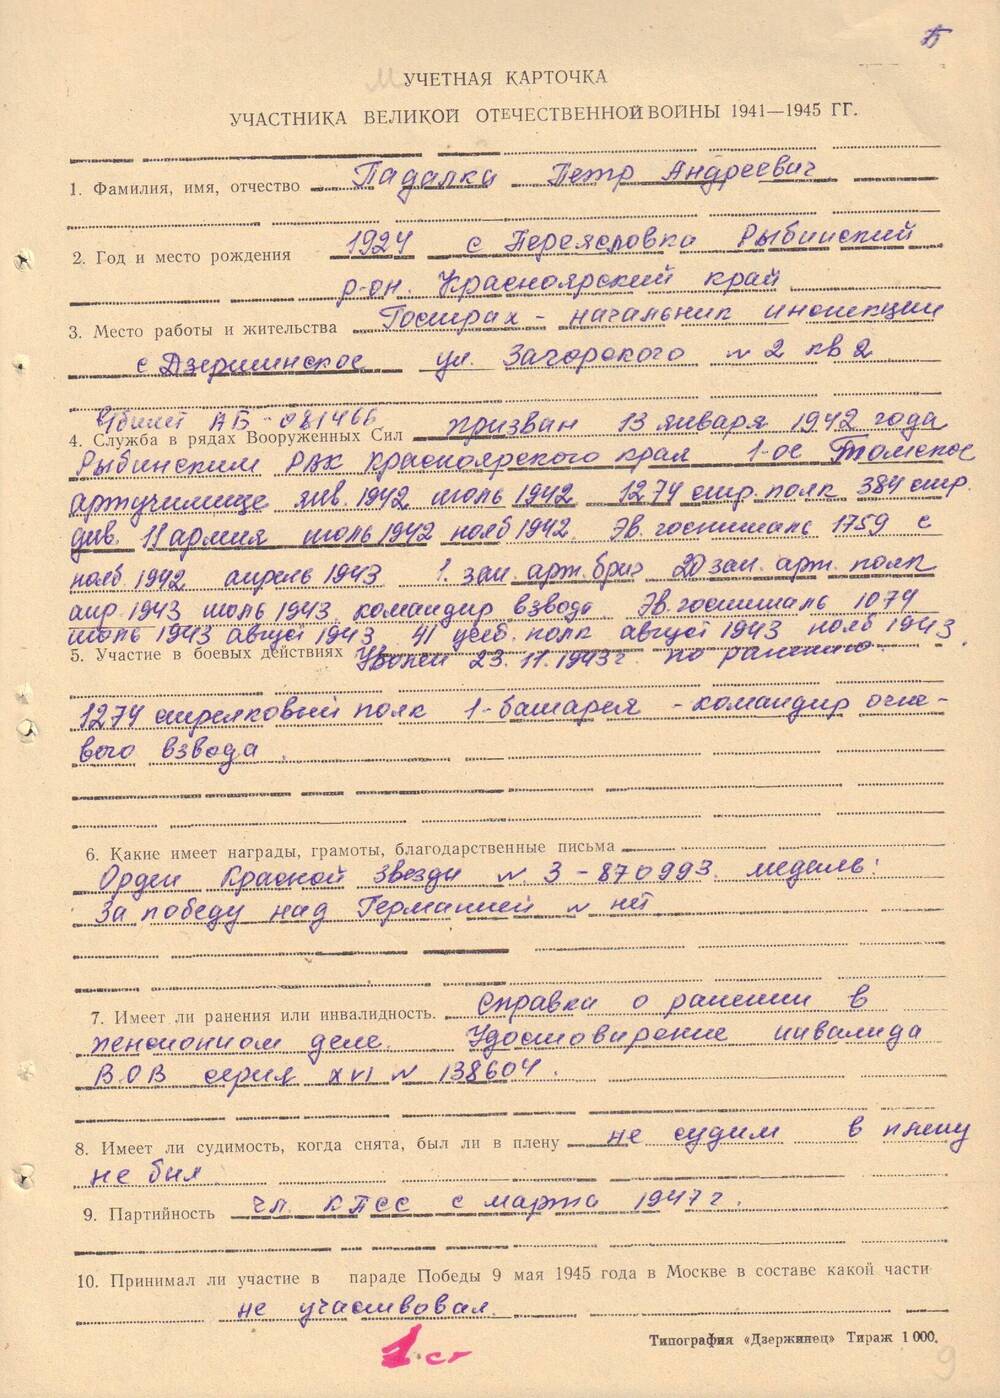 УЧЕТНАЯ КАРТОЧКА
УЧАСТНИКА ВЕЛИКОЙ ОТЕЧЕСТВЕННОЙ ВОЙНЫ 1941—1945 ГГ.
1. Фамилия, имя, отчество Падалка Петр Андреевич
2. Год и место рождения 1924 с Переясловка Рыбинский
р-он. Красноярский край
3. Место работы и жительства Госстрах - начальник инспекции
с Дзержинское ул. Загорского N 2 кв 2
в/билет АБ - 081466
4. Служба в рядах Вооруженных Сил призван 13 января 1942 года
Рыбинским РВК Красноярского края 1-ое Томское
артучилище янв. 1942 июль 1942 1274 стр. полк 384 стр.
див. 11 армия июль 1942 нояб 1942. Эв. госпиталь 1759 с
нояб. 1942 апрель 1943 1. зап. арт. бриг 20 зап. арт. полк
апр 1943 июль 1943 командир взвода Эв. госпиталь 1074
июль 1943 август 1943 41 учеб. полк август 1943 нояб 1943
5. Участие в боевых действиях Уволен 23.11.1943г. по ранению.
1274 стрелковый полк 1-батарея - командир огне-
вого взвода.
6. Какие имеет награды, грамоты, благодарственные письма
Орден Красной Звезды N 3-870993. медаль:
За победу над Германией N нет
7. Имеет ли ранения или инвалидность. Справка о ранении в
пенсионном деле. Удостоверение инвалида
В.О.В серия XVI N 138604.
8. Имеет ли судимость, когда снята, был ли в плену не судим в плену
не был
9. Партийность чл. КПСС с марта 1947 г.
10. Принимал ли участие в параде Победы 9 мая 1945 года в Москве в составе какой части
не участвовал.
1 ст
Типография «Дзержинец» Тираж 1000.
9